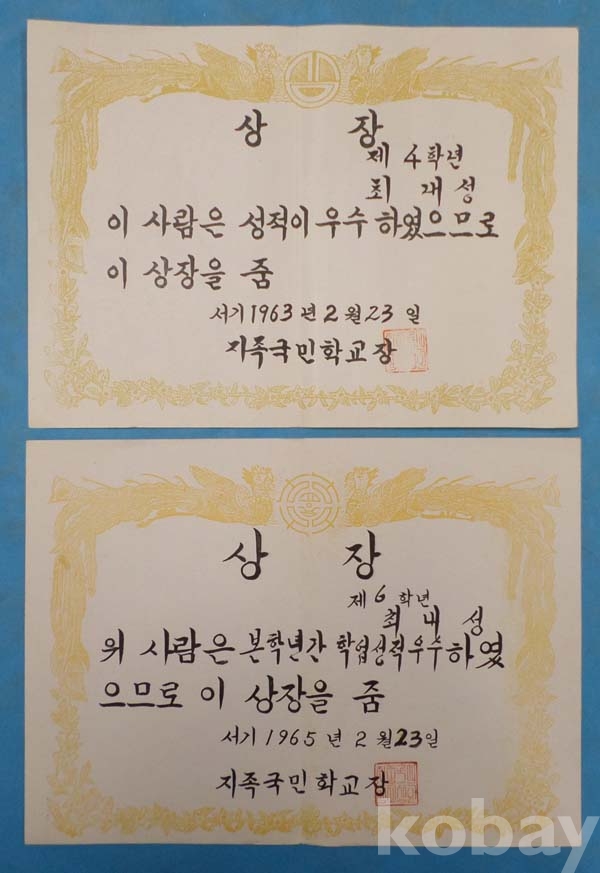 상 장
제 4학년
최 재 성
이 사람은 성적이 우수 하였으므로
이 상장을 줌
서기 1963 년 2 월 23 일
지족국민학교장
상 장
제 6 학년
최 내 성
위 사람은 본학년간 학업성적우수하였
으므로 이 상장을 줌
서기 1965 년 2 월 23일
지족국민학교장
kobay